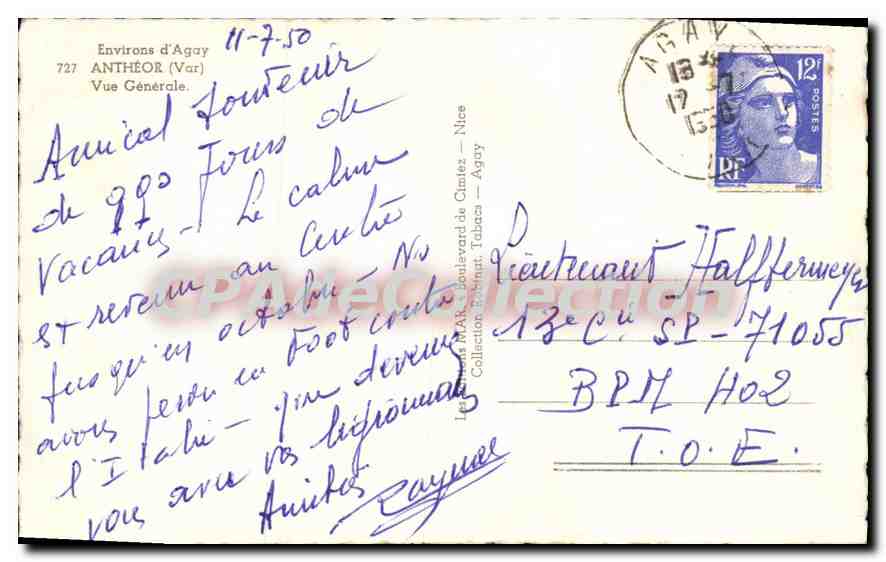 Environs d'Agay
727 ANTHÉOR (Var)
Vue Générale.
11-7-50
Amical souvenir
de qqs jours de
vacances - Le calme
est revenu au Centre
jusqu'en octobre - Ns
avons perdu en Foot contre
l'Italie - que devenez
vous avec vos légionnaires
Amitiés
Raynal
Les Editions MAR, Boulevard de Cimiez - Nice
Collection Tabacs - Agay
AGAY
18
17 -7
1950
12F
POSTES
RF
Lieutenant Halffermeyer
13e Cie SP - 71055
BPM 402
T.O.E.
CPADeCollection